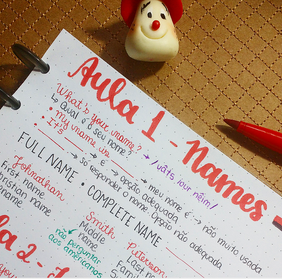 Aula 1 - Names
What's your name? → /uáts iour neim/
↳ Qual é o seu nome?
• My name is → meu nome é → não muito usada
• It's → é → opção adequada
→ só responder o nome. opção não adequada
FULL NAME • COMPLETE NAME
Johnathan Smith Peterson
First name Middle name
Christian name
name
não perguntar aos americanos
Aula 2 -